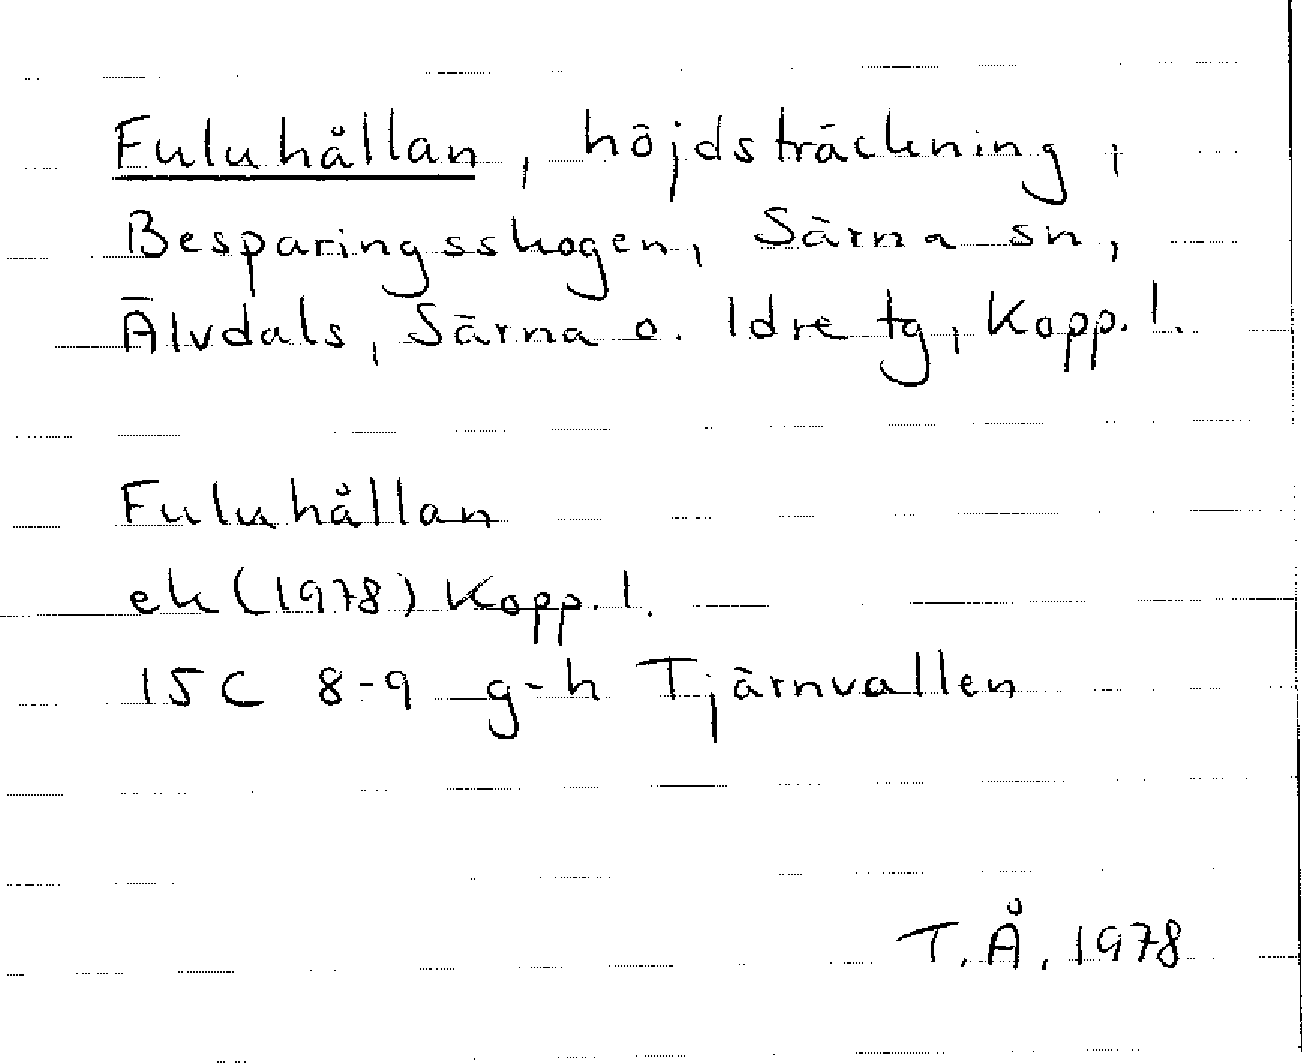 Fuluhållan, höjdsträckning,
Besparingsskogen, Särna sn,
Älvdals, Särna o. Idre tg, Kopp. l.
Fuluhållan
ek (1978) Kopp. l.
15C 8-9 g-h Tjärnvallen
T.Å, 1978